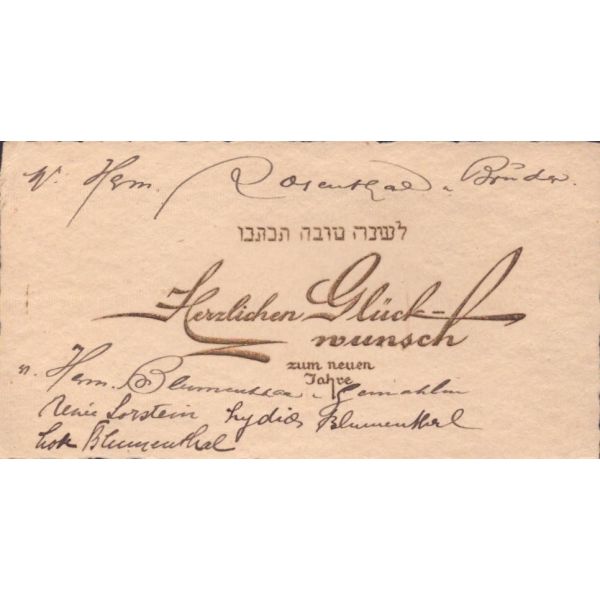 v. Herm. Rosenthal u. Brüder.
לשנה טובה תכתבו
Herzlichen Glück-
wunsch
zum neuen
Jahre
v. Herm. Blumenthal u. Gemahlin
Lydia Blumenthal
Blumenthal